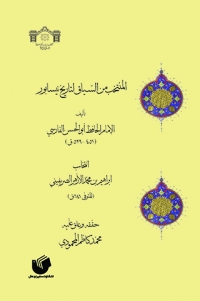 المنتخب من السياق لتاريخ نيسابور
تأليف
الإمام الحافظ أبو الحسن الفارسي
(٤٥١ - ٥٢٩ ق)
انتخاب
إبراهيم بن محمد الأزهر الصريفيني
(المتوفى ٦٤١ ق)
حققه وعلق عليه
محمد كاظم المحمودي